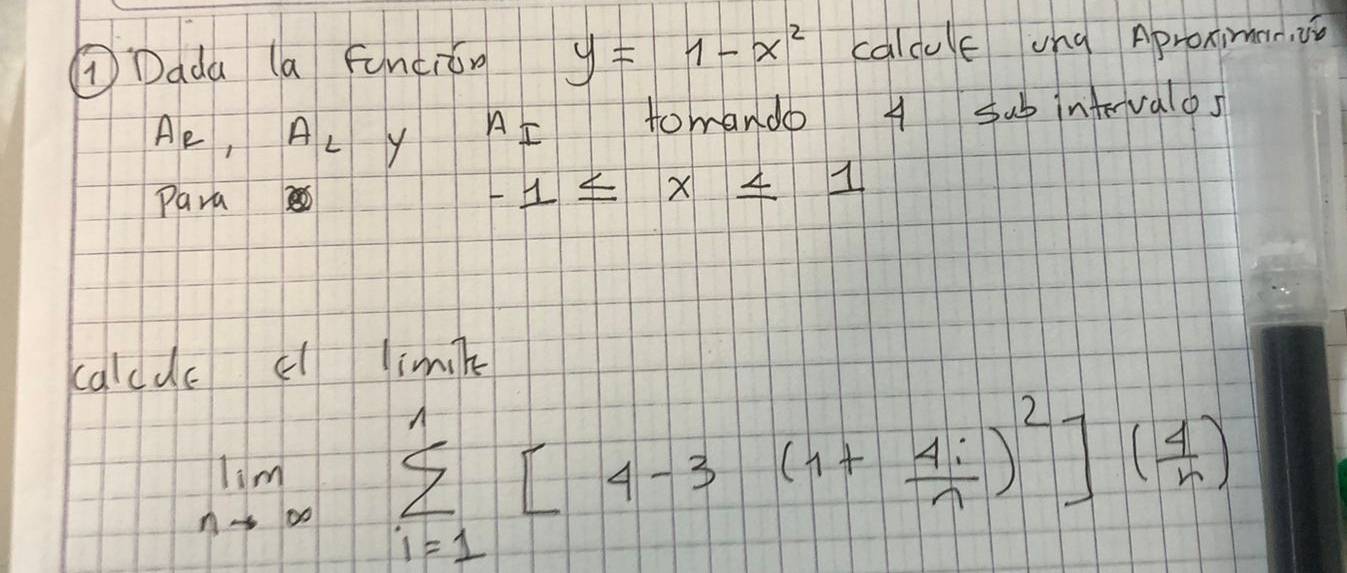 ① Dada la función y = 1 - x² calcule una Aproximación
A_R, A_L y A_I tomando 4 sub intervalos
Para -1 ≤ x ≤ 1
calcule el limite
lim n → ∞ Σ i=1 n [ 4 - 3 (1 + 4i/n)² ] (4/n)